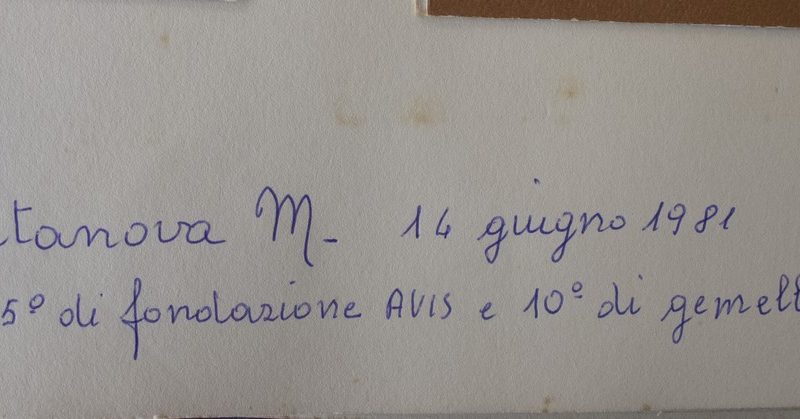 tanova M. 14 giugno 1981
5° di fondazione AVIS e 10° di gemell